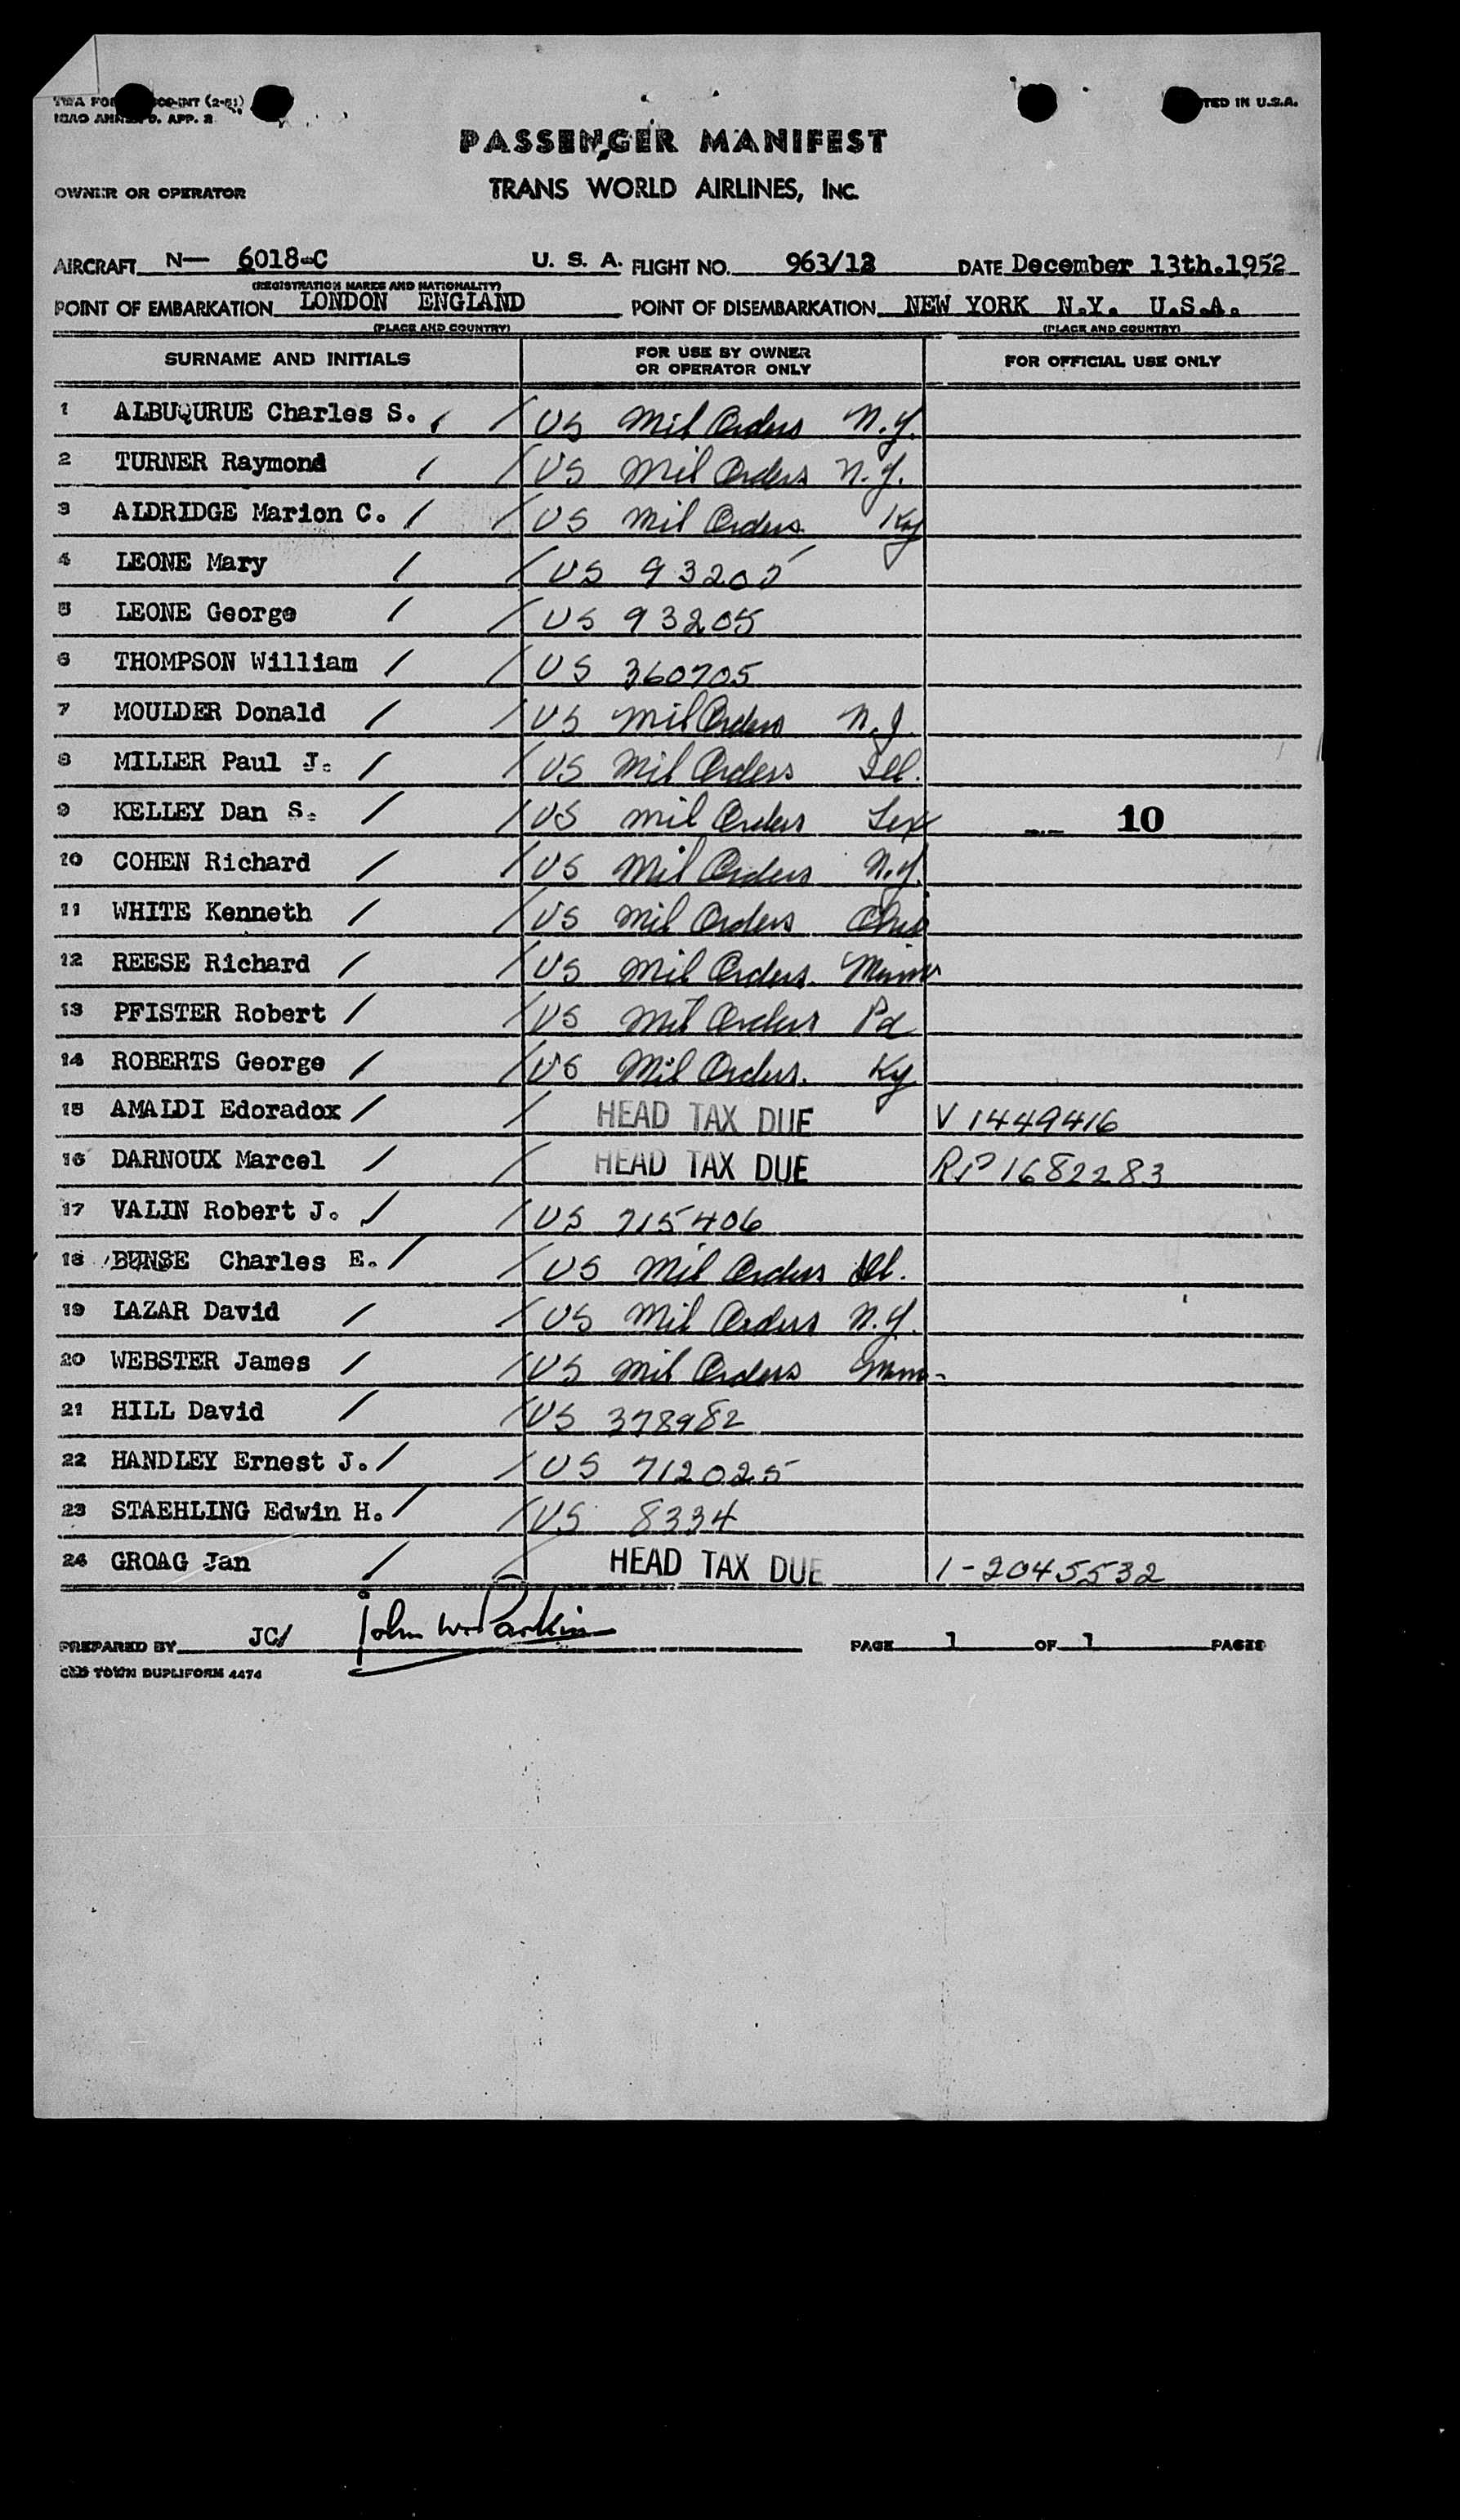 TWA FOR INT (2-51) TED IN U.S.A.
ICAO ANNEX 9. APP. 2
PASSENGER MANIFEST
OWNER OR OPERATOR TRANS WORLD AIRLINES, INC.
AIRCRAFT N— 6018-C U. S. A. FLIGHT NO. 963/13 DATE December 13th.1952
(REGISTRATION MARKS AND NATIONALITY)
POINT OF EMBARKATION LONDON ENGLAND POINT OF DISEMBARKATION NEW YORK N.Y. U.S.A.
(PLACE AND COUNTRY) (PLACE AND COUNTRY)
SURNAME AND INITIALS FOR USE BY OWNER OR OPERATOR ONLY FOR OFFICIAL USE ONLY
1 ALBUQURUE Charles S. / / US Mil Orders N.Y.
2 TURNER Raymond / / US Mil Orders N.J.
3 ALDRIDGE Marion C. / / US Mil Orders Ky
4 LEONE Mary / / US 93205
5 LEONE George / / US 93205
6 THOMPSON William / / US 360705
7 MOULDER Donald / / US Mil Orders N.J.
8 MILLER Paul J. / / US Mil Orders Ill.
9 KELLEY Dan S. / / US Mil Orders Tex 10
10 COHEN Richard / / US Mil Orders N.Y.
11 WHITE Kenneth / / US Mil Orders Ohio
12 REESE Richard / / US Mil Orders. Minn
13 PFISTER Robert / / US Mil Orders Pa
14 ROBERTS George / / US Mil Orders. Ky
15 AMALDI Edoradox / / HEAD TAX DUE V 1449416
16 DARNOUX Marcel / / HEAD TAX DUE RP 1682283
17 VALIN Robert J. / / US 715406
18 BUNSE Charles E. / / US Mil Orders Ill.
19 LAZAR David / / US Mil Orders N.Y.
20 WEBSTER James / / US Mil Orders
21 HILL David / / US 378982
22 HANDLEY Ernest J. / / US 712025
23 STAEHLING Edwin H. / / US 8334
24 GROAG Jan / / HEAD TAX DUE 1-2045532
PREPARED BY JC/ John W. Parkin PAGE 1 OF 1 PAGES
OLD TOWN DUPLIFORM 4474